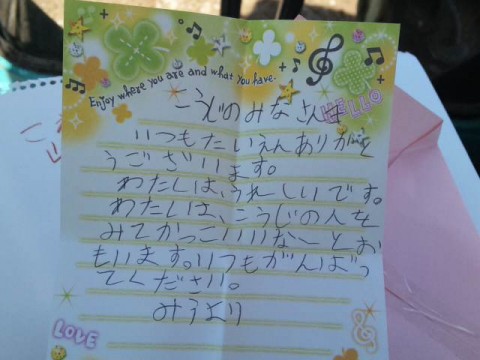 Enjoy where you are and what you have.
HELLO
こうじのみなさんは
いつもたいえんありがと
うございます。
わたしは、うれしいです。
わたしは、こうじの人を
みてかっこいいな〜とお
もいます。いつもがんばっ
てください。
みうより
LOVE